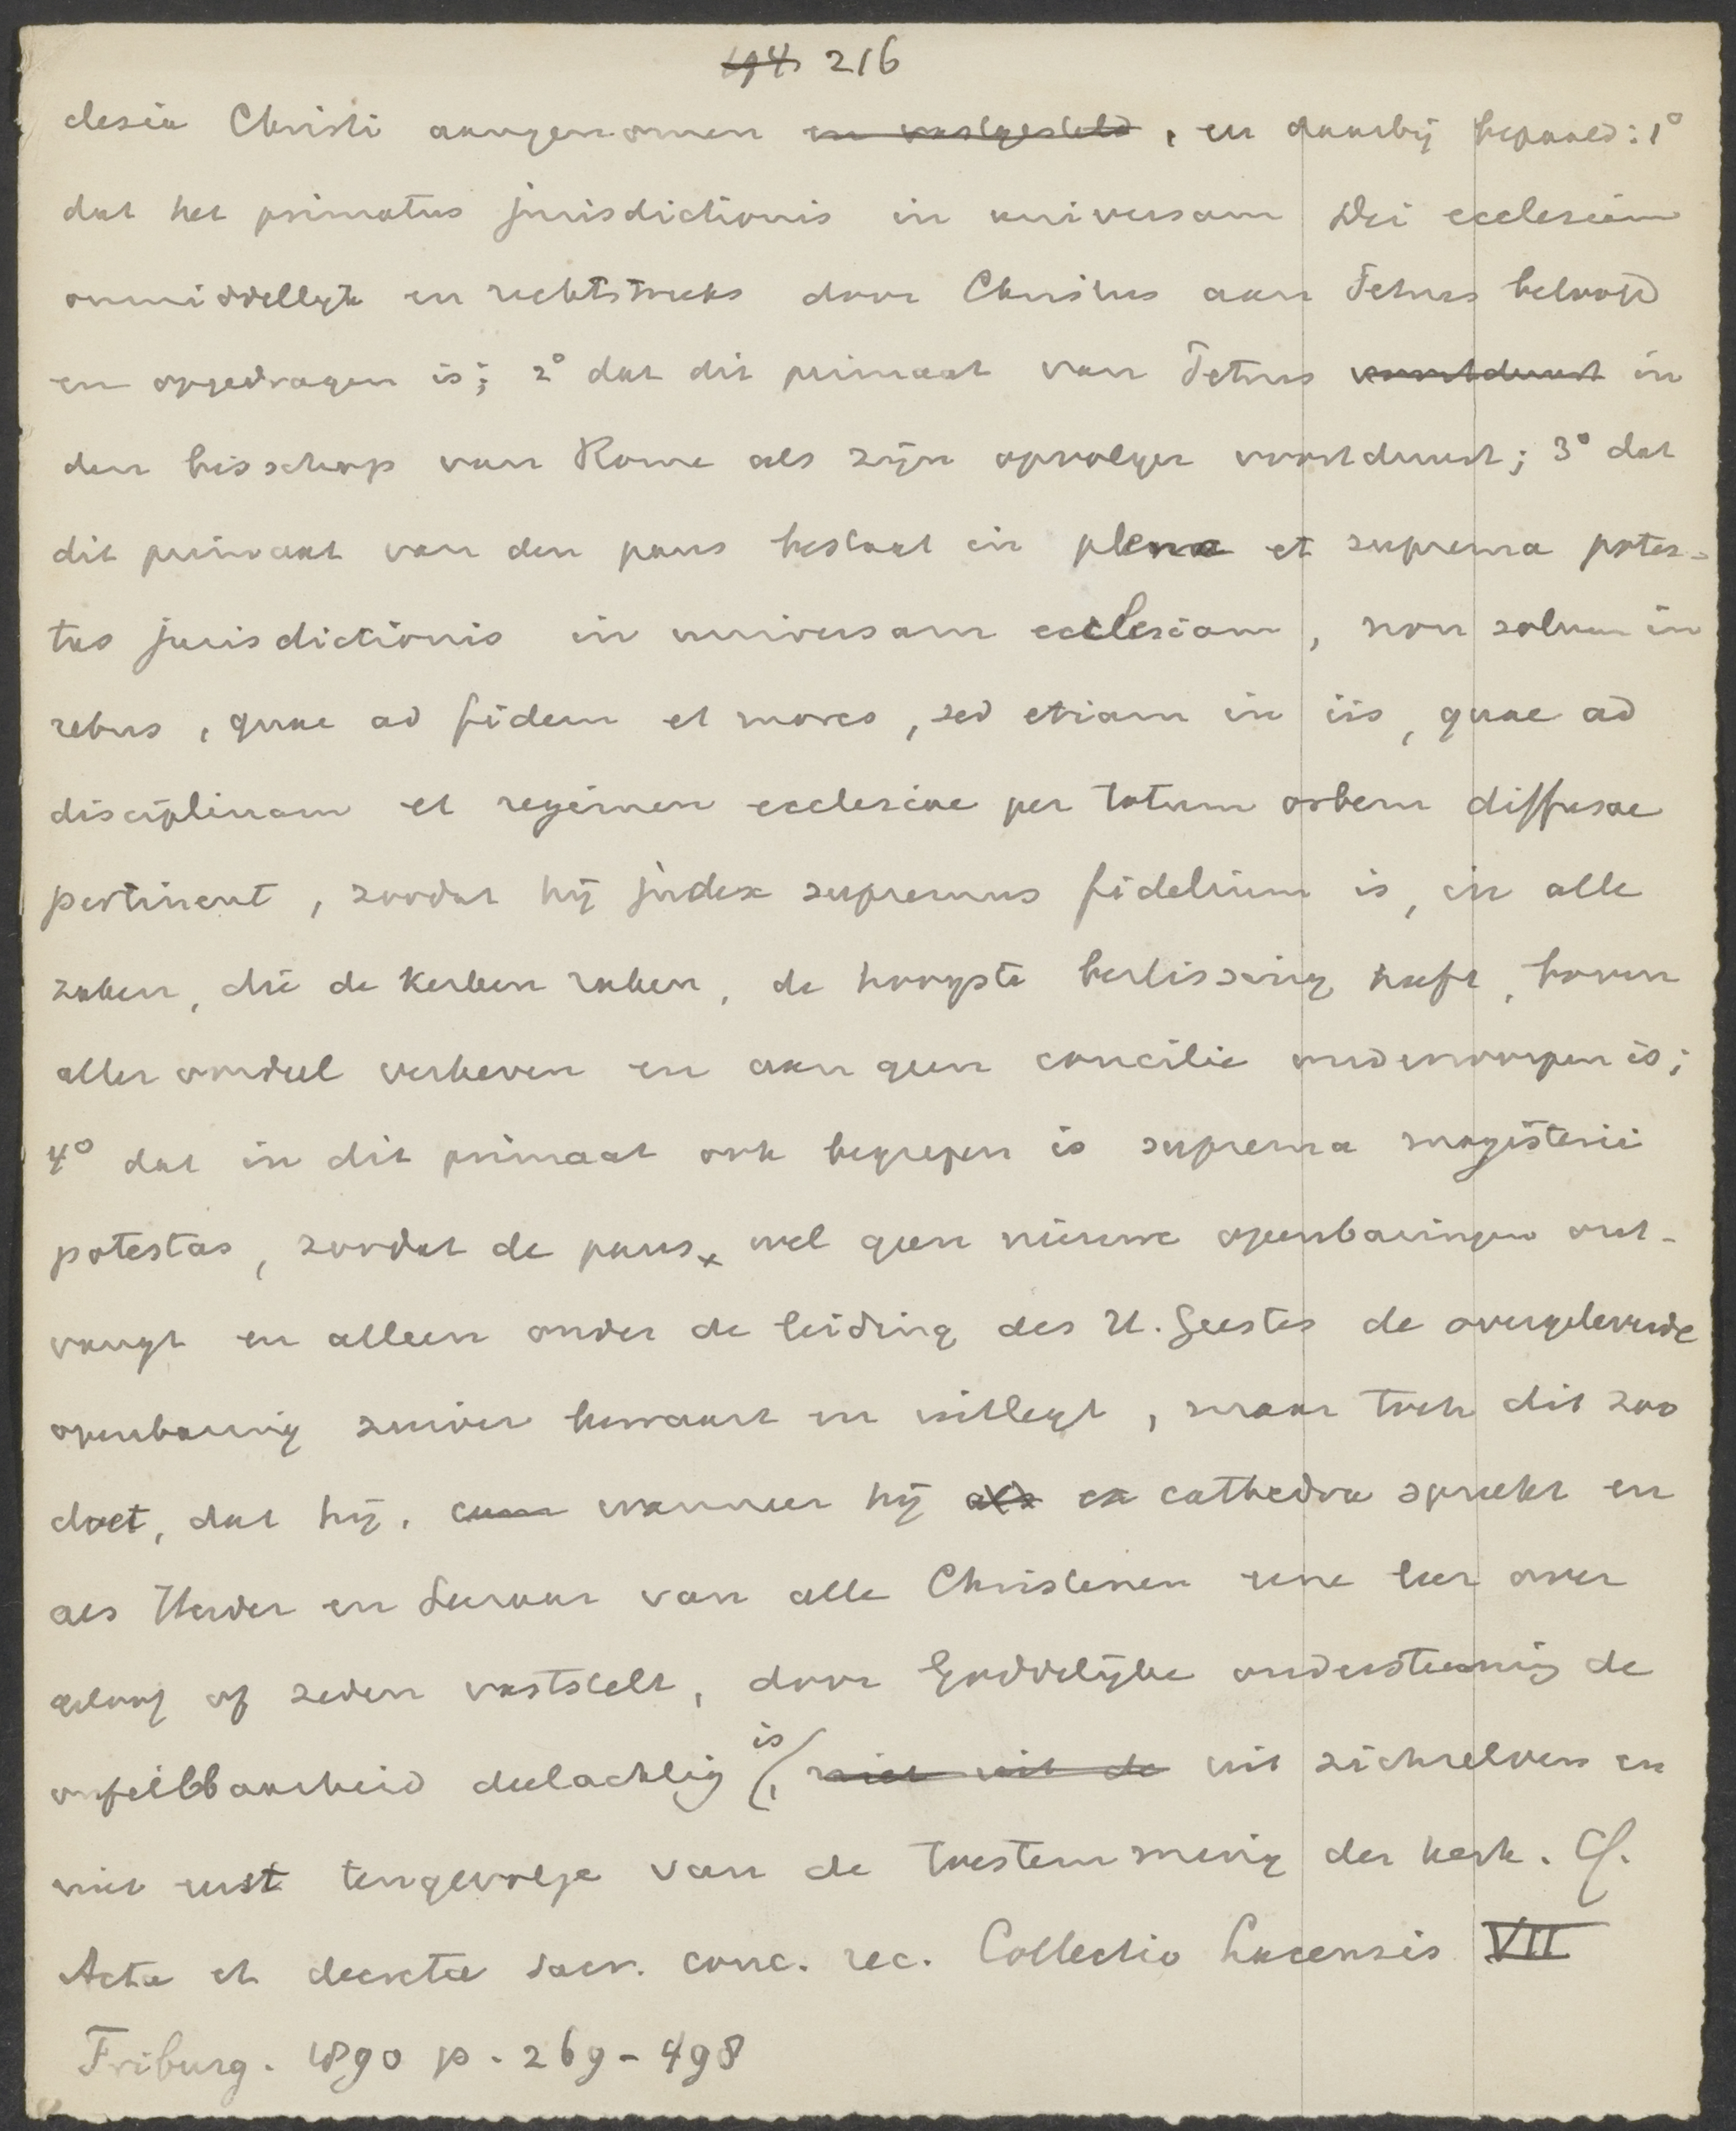 194 216
clesia Christi aangenomen en vastgesteld, en daarbij bepaald: 1°
dat het primatus jurisdictionis in universam Dei ecclesiam
onmiddellijk en rechtstreeks door Christus aan Petrus beloofd
en opgedragen is; 2° dat dit primaat van Petrus voortduurt in
den bisschop van Rome als zijn opvolger voortduurt; 3° dat
dit primaat van den paus bestaat in plena et suprema potes-
tas jurisdictionis in universam ecclesiam, non solum in
rebus, quae ad fidem et mores, sed etiam in iis, quae ad
disciplinam et regimen ecclesiae per totum orbem diffusae
pertinent, zoodat hij judex supremus fidelium is, in alle
zaken, die de kerken raken, de hoogste beslissing heeft, boven
aller oordeel verheven en aan geen concilie onderworpen is;
4° dat in dit primaat ook begrepen is suprema magisterii
potestas, zoodat de paus, wel geen nieuwe openbaringen ont-
vangt en alleen onder de leiding des H. Geestes de overgeleverde
openbaring zuiver bewaart en uitlegt, maar toch dit zoo
doet, dat hij, cum wanneer hij als ex cathedra spreekt en
als Herder en Leeraar van alle Christenen eene leer over
geloof of zeden vaststelt, door Goddelijke ondersteuning de
onfeilbaarheid deelachtig is, niet uit de uit zichzelven en
niet eerst tengevolge van de toestemming der kerk. Cf.
Acta et decreta sacr. conc. rec. Collectio Lacensis VII
Friburg. 1890 p. 269-498